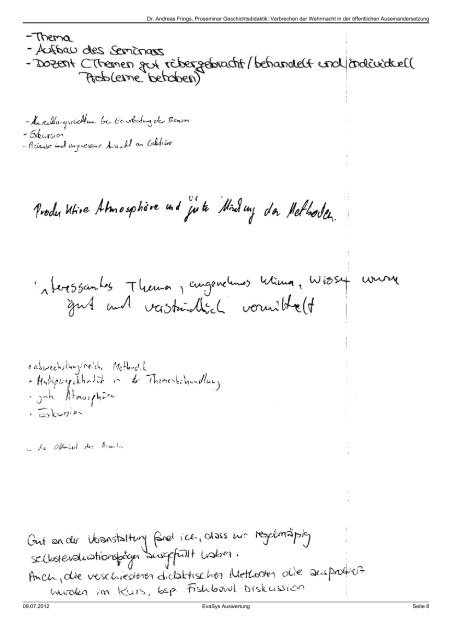 Dr. Andreas Frings, Proseminar Geschichtsdidaktik: Verbrechen der Wehrmacht in der öffentlichen Auseinandersetzung
- Thema
- Aufbau des Seminars
- Dozent (Themen gut rübergebracht/behandelt und individuell
Probleme behoben)
bei Erarbeitung der Themen
- Exkursion
- Präzise und angemessene Auswahl an Lektüre
Produktive Atmosphäre und gute Mischung der Methoden.
nteressantes Thema, angenehmes Klima, Wissen wurde
gut und verständlich vermittelt
• abwechslungsreiche Methodik
• Multiperspektivität in der Themenbehandlung
• gute Atmosphäre
• Exkursion
die des
Gut an der Veranstaltung fand ich, dass wir regelmäßig
selbstevaluationsbögen ausgefüllt haben.
Auch, die verschiedenen didaktischen Methoden die ausprobiert
wurden im Kurs, bsp. Fishbowl Diskussion
09.07.2012 EvaSys Auswertung Seite 8